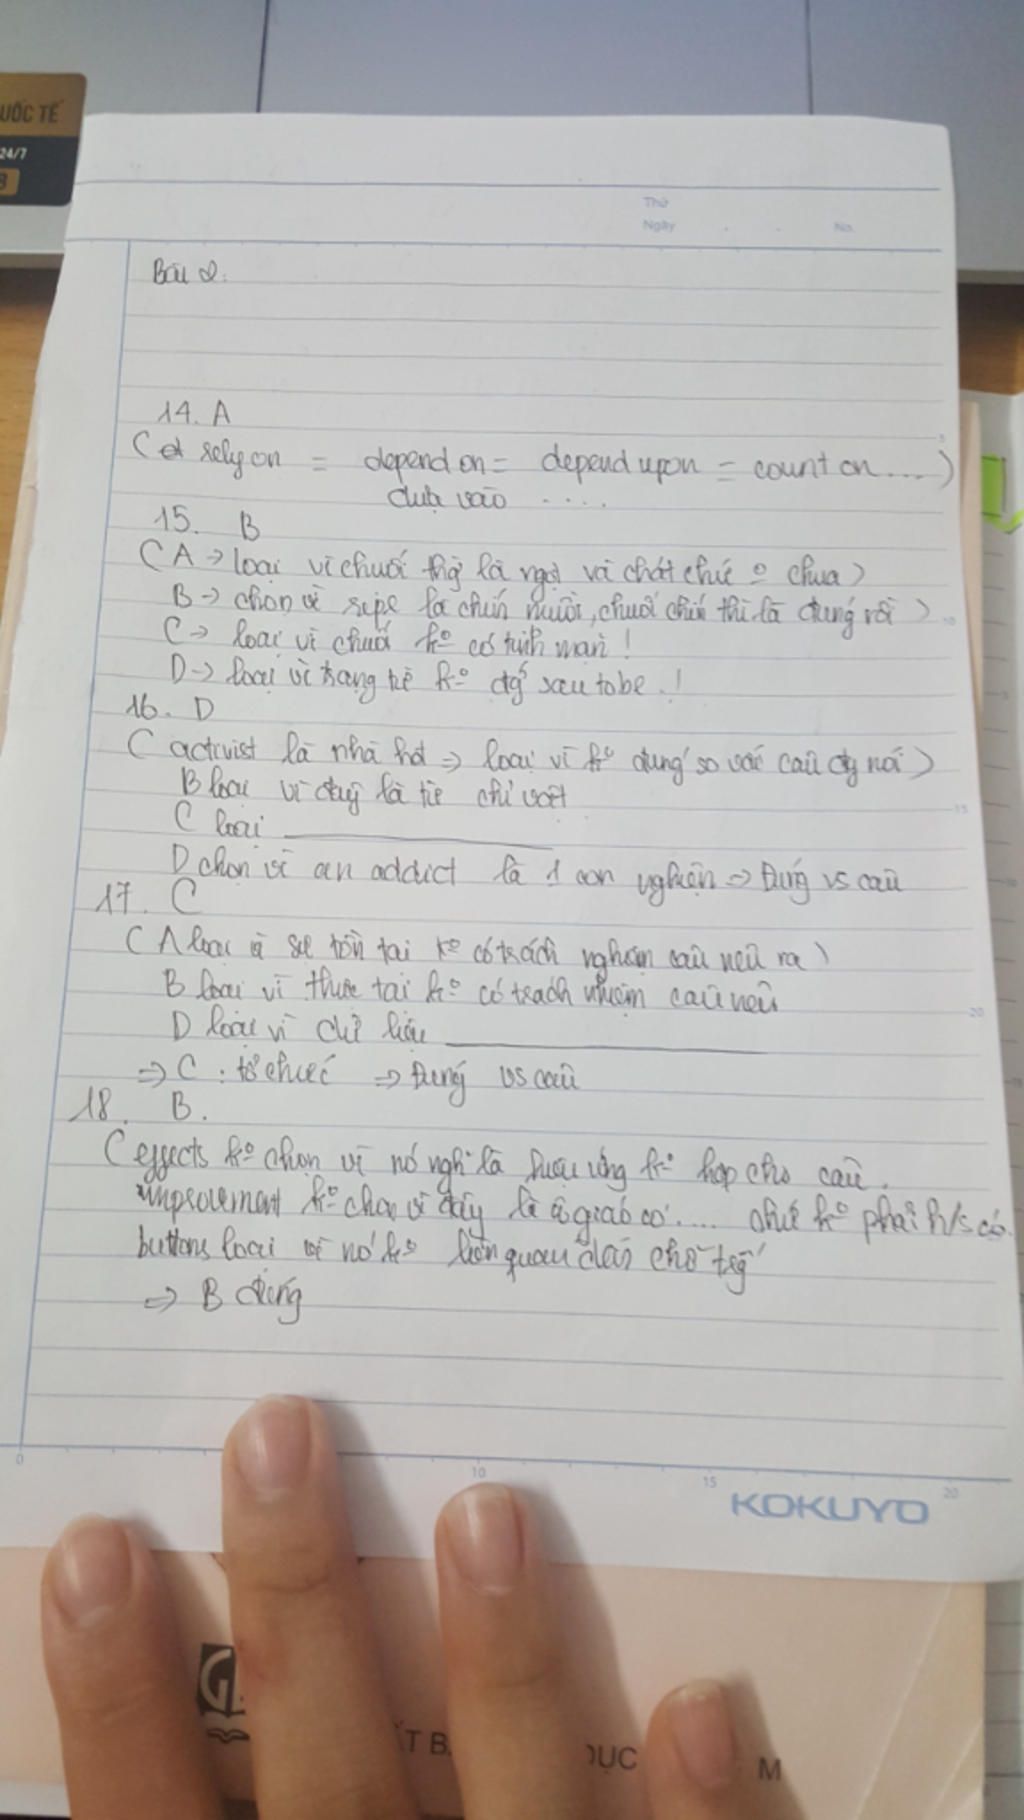 UỐC TẾ
24/7
Thứ
Ngày No.
Bài 2:
14. A
( rely on = depend on = depend upon = count on ....)
dựa vào ....
15. B
( A → loại vì chuối thì là ngọt và chát chứ k° chua )
B → chọn vì ripe là chín muồi, chuối chín thì là đúng rồi )
C → loại vì chuối k° có tính mặn !
D → loại vì trạng từ k° đg sau tobe !
16. D
( activist là nhà hđ ⇒ loại vì k° đúng so với câu đg nói )
B loại vì đây là từ chỉ vật
C loại
D chọn vì an addict là 1 con nghiện ⇒ Đúng vs câu
17. C
( A loại vì sự tồn tại k° có trách nghiệm câu nêu ra )
B loại vì thực tại k° có trách nhiệm câu nêu
D loại vì dữ liệu
⇒ C : tổ chức ⇒ Đúng vs câu
18. B.
( effects k° chọn vì nó nghĩ là hiệu ứng k° hợp cho câu.
improvement k° chọn vì đây là cơ.... chứ k° phải h/s có.
buttons loại vì nó k° liên quan đến chỗ
⇒ B đúng
0 10 15 20
KOKUYO
G
M